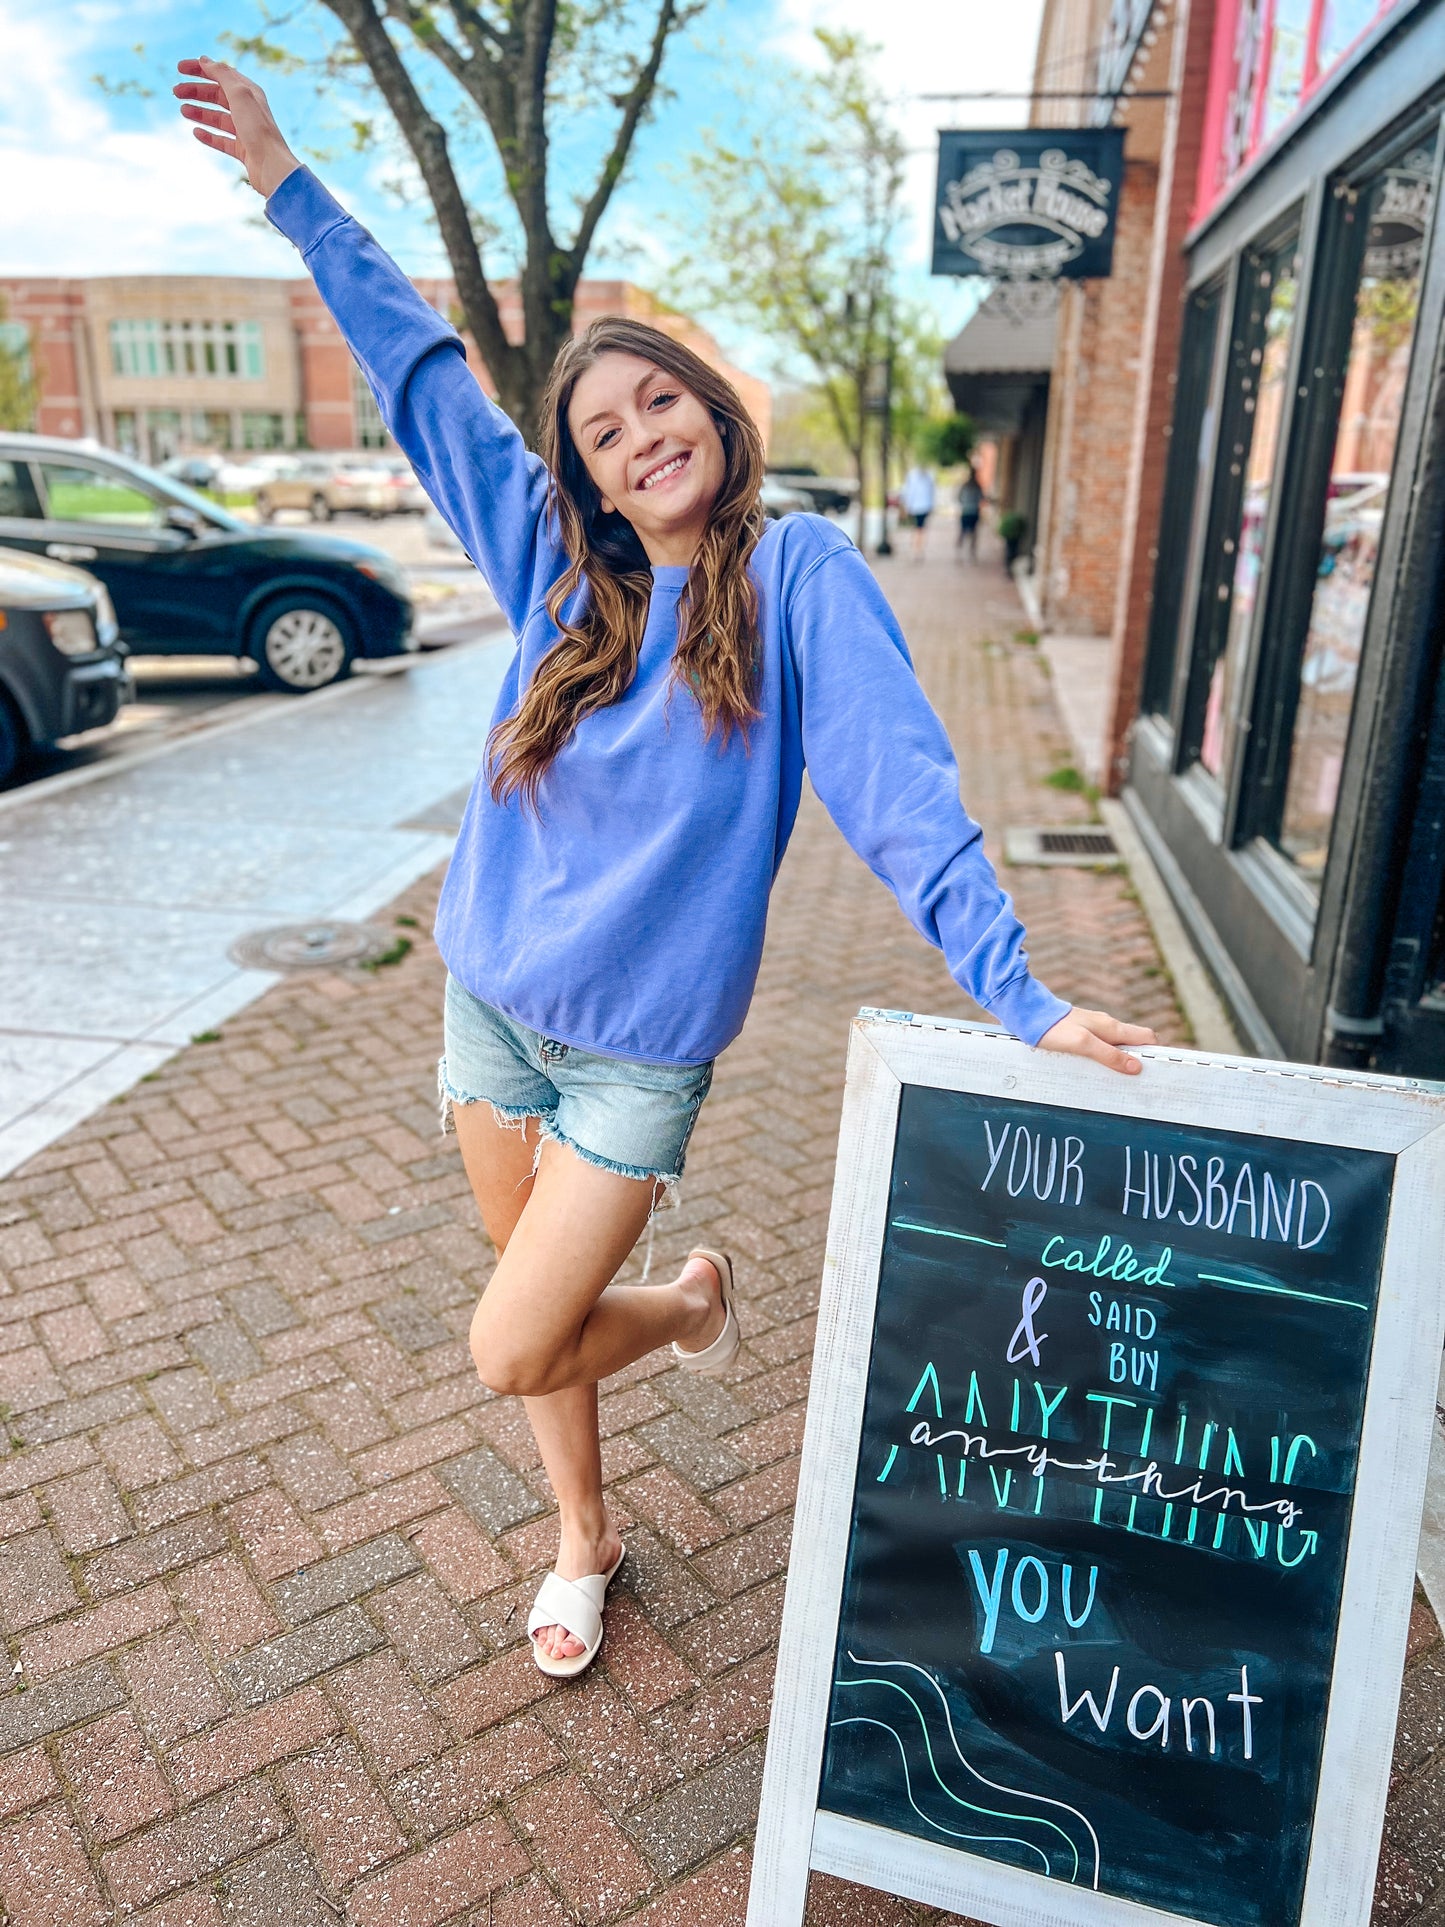 Market House
YOUR HUSBAND
called
& SAID
BUY
ANYTHING
anything
YOU
Want